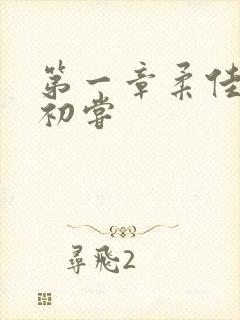 第一章柔佳
初尝
尋飛2